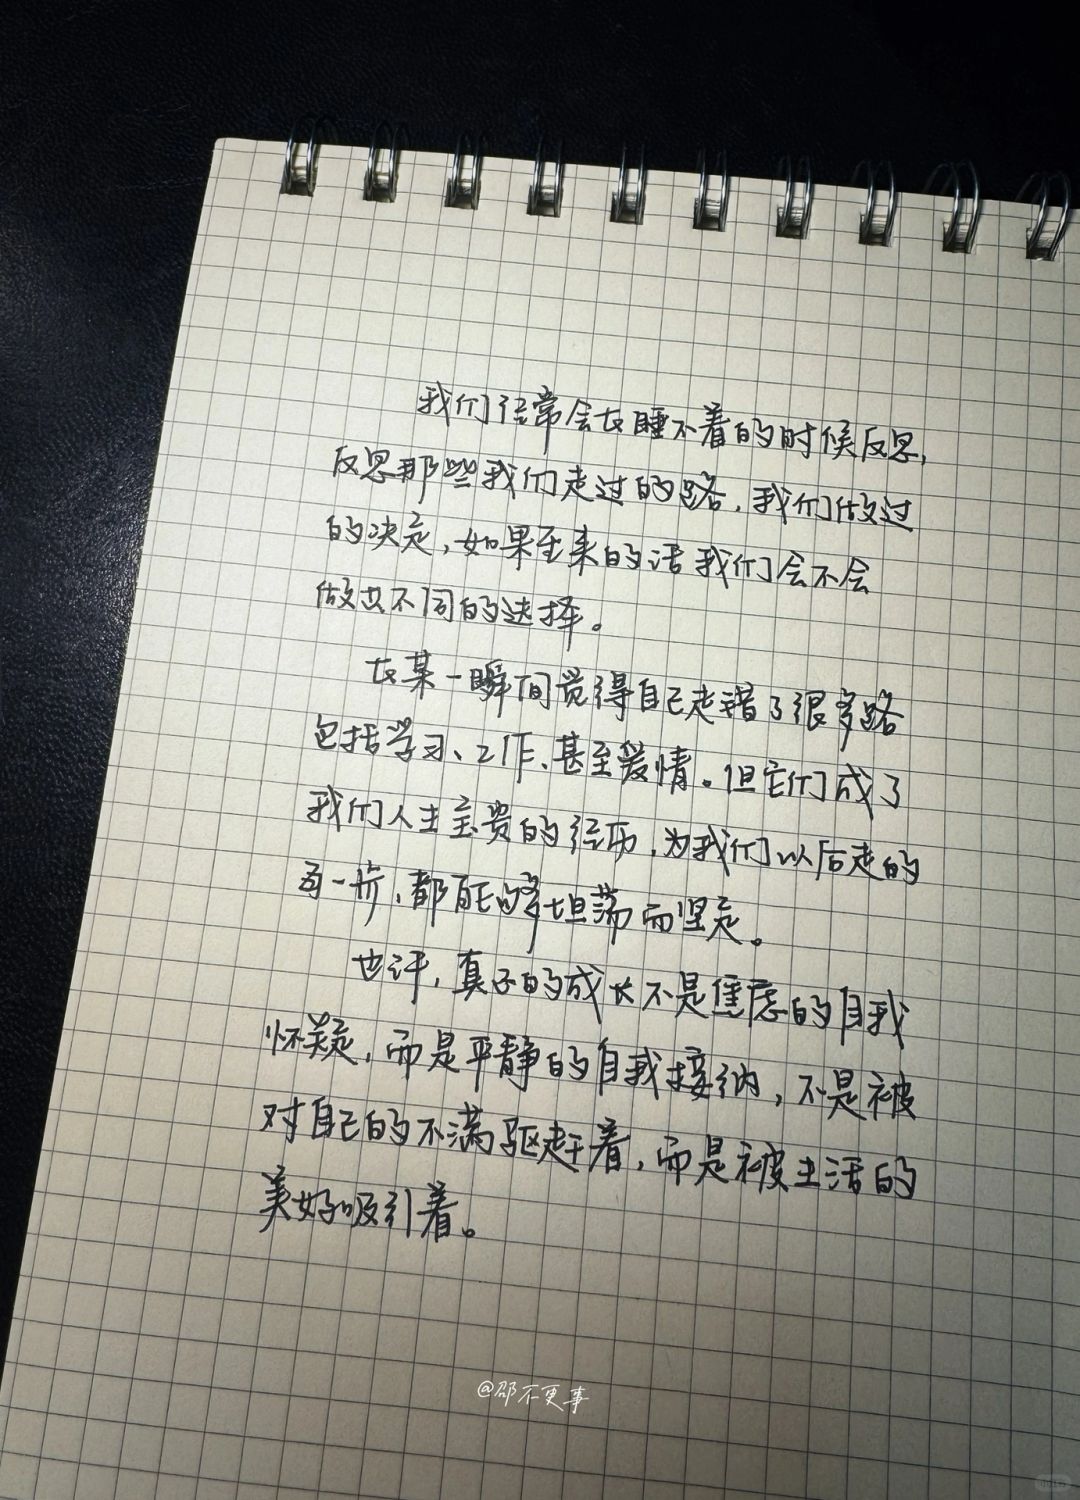 我们经常会在睡不着的时候反思，
反思那些我们走过的路，我们做过
的决定，如果重来的话我们会不会
做出不同的选择。
在某一瞬间觉得自己走错了很多路
包括学习、工作、甚至爱情。但它们成了
我们人生宝贵的经历，为我们以后走的
每一步，都能够坦荡而坚定。
也许，真正的成长不是焦虑的自我
怀疑，而是平静的自我接纳，不是被
对自己的不满驱赶着，而是被生活的
美好吸引着。
@邵不更事